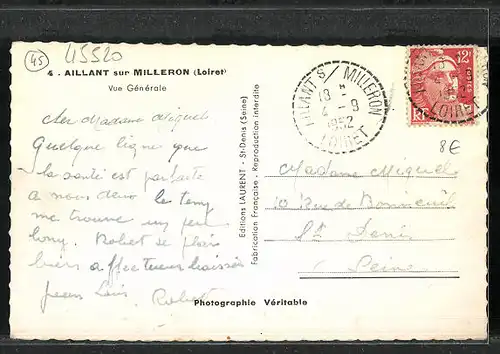 45
45520
4 . AILLANT sur MILLERON (Loiret)
Vue Générale
Cher Madame Miquel
Quelque ligne que
la santé est parfaite
a nous deux le temp
me trouve un peu
long. Robert se plai
affectueux baisés
Robert
Editions LAURENT - St-Denis (Seine)
Fabrication Française - Reproduction interdite
AILLANT S/ MILLERON
18 H
4 - 9
1952
LOIRET
12F
RF
POSTES
LOIRET
8€
Madame Miquel
10 Rue de Bonneuil
St Denis
Seine
Photographie Véritable